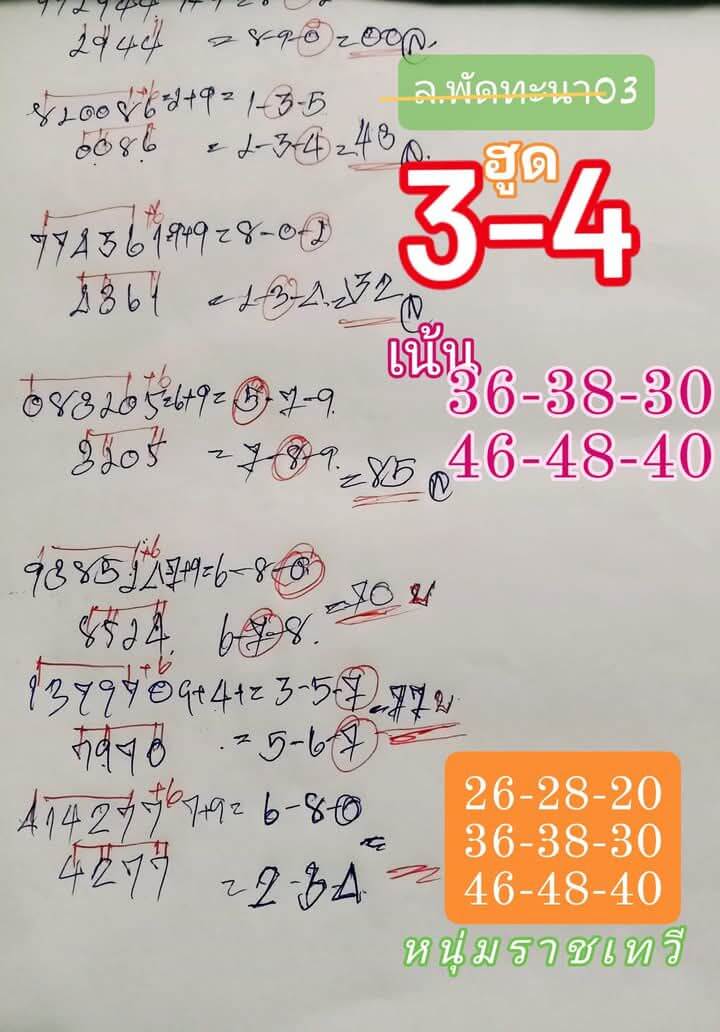 2944 = 8-9-0=00ล.
ล.พัดทะนา03
820086=2+9= 1-3-5
0086 = 2-3-4=43 ล.
ฮูด
3-4
774361+9+9=8-0-2
4361 = 2-3-4=32 ล
เน้น
36-38-30
083205=6+9=5-7-9.
46-48-40
3205 = 7-8-9. =85 ล
+6
938524 7+9=6-8-0
=70 บ
8524. 6-7-8.
+6
1379709+4+= 3-5-7 =77บ
7970 = 5-6-7
+6
414277 7+9= 6-8-0
4277 = 2-34
26-28-20
36-38-30
46-48-40
หนุ่มราชเทวี